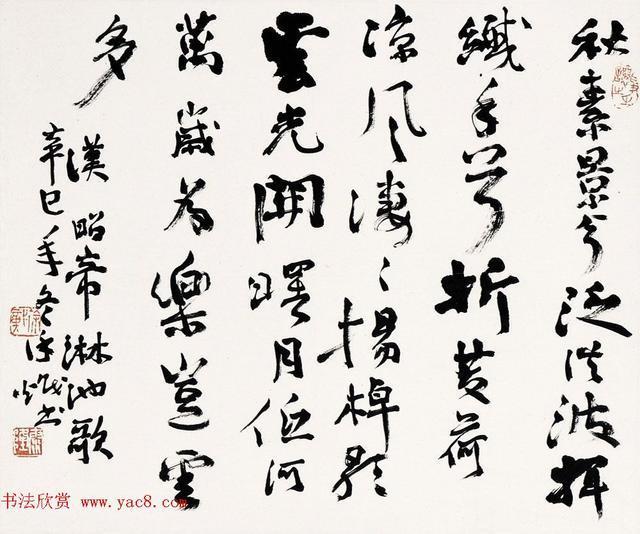 秋素景兮泛洪波揮
纖手兮折芰荷
凉風凄〻揚棹
雲光開曙月低河
萬歲为樂豈雲
多
漢昭帝淋池歌
辛巳年冬书
书法欣赏 www.yac8.com